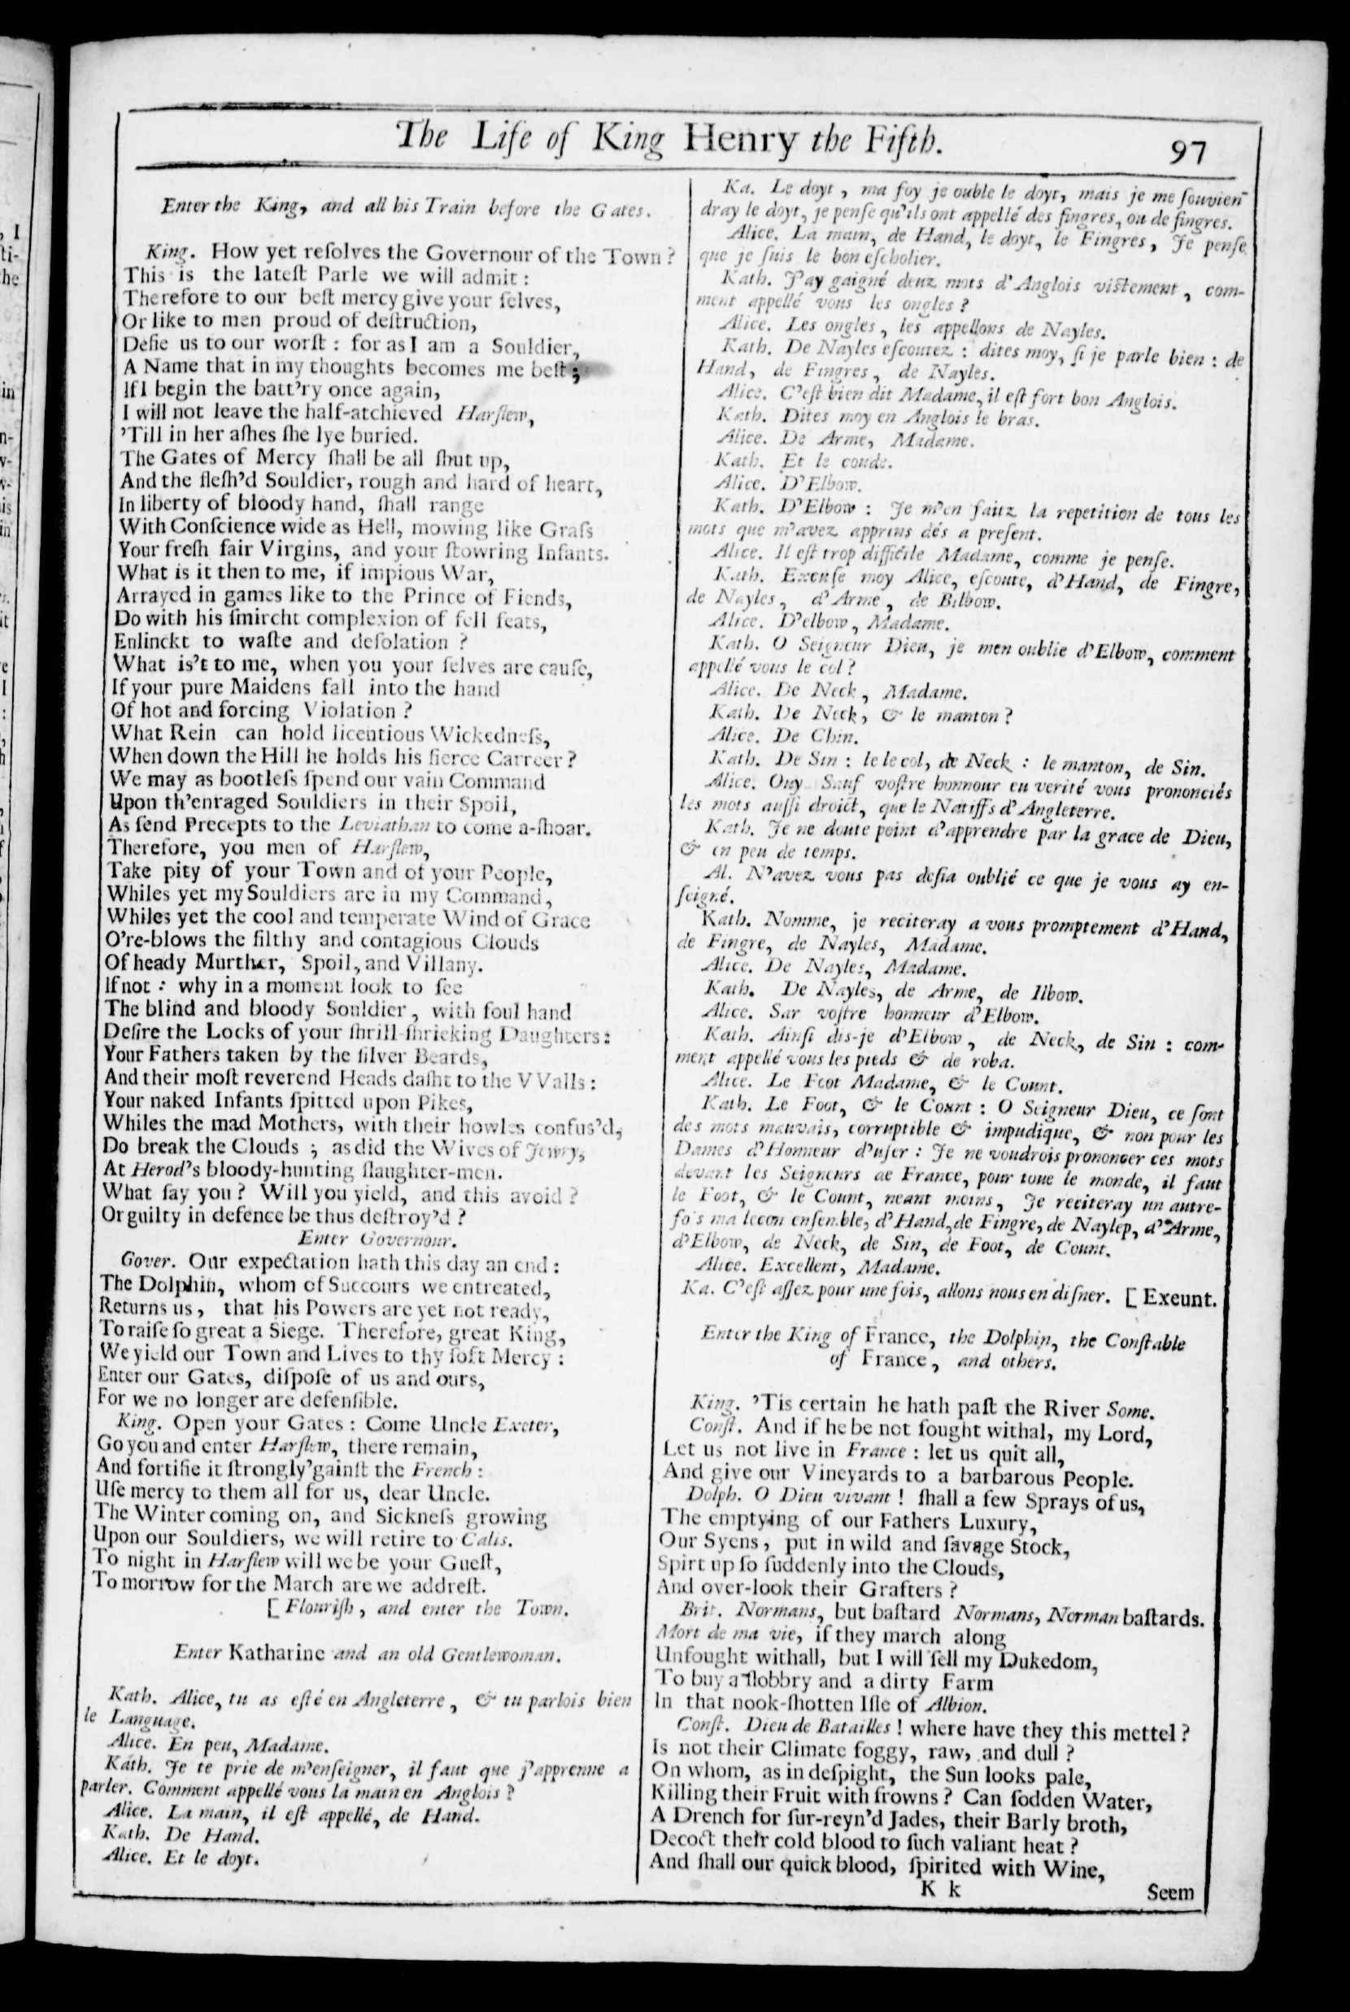 The Life of King Henry the Fifth. 97
Enter the King, and all his Train before the Gates.
King. How yet reſolves the Governour of the Town?
This is the lateſt Parle we will admit:
Therefore to our beſt mercy give your ſelves,
Or like to men proud of deſtruction,
Defie us to our worſt: for as I am a Souldier,
A Name that in my thoughts becomes me beſt;
If I begin the batt'ry once again,
I will not leave the half-atchieved Harflew,
'Till in her aſhes ſhe lye buried.
The Gates of Mercy ſhall be all ſhut up,
And the fleſh'd Souldier, rough and hard of heart,
In liberty of bloody hand, ſhall range
With Conſcience wide as Hell, mowing like Graſs
Your freſh fair Virgins, and your flowring Infants.
What is it then to me, if impious War,
Arrayed in games like to the Prince of Fiends,
Do with his ſmircht complexion of fell feats,
Enlinckt to waſte and deſolation?
What is't to me, when you your ſelves are cauſe,
If your pure Maidens fall into the hand
Of hot and forcing Violation?
What Rein can hold licentious Wickedneſs,
When down the Hill he holds his fierce Carreer?
We may as bootleſs ſpend our vain Command
Upon th'enraged Souldiers in their Spoil,
As ſend Precepts to the Leviathan to come a-ſhoar.
Therefore, you men of Harflew,
Take pity of your Town and of your People,
Whiles yet my Souldiers are in my Command,
Whiles yet the cool and temperate Wind of Grace
O're-blows the filthy and contagious Clouds
Of heady Murther, Spoil, and Villany.
If not: why in a moment look to ſee
The blind and bloody Souldier, with foul hand
Deſire the Locks of your ſhrill-ſhrieking Daughters:
Your Fathers taken by the ſilver Beards,
And their moſt reverend Heads daſht to the VValls:
Your naked Infants ſpitted upon Pikes,
Whiles the mad Mothers, with their howles confus'd,
Do break the Clouds; as did the Wives of Jewry,
At Herod's bloody-hunting ſlaughter-men.
What ſay you? Will you yield, and this avoid?
Or guilty in defence be thus deſtroy'd?
Enter Governour.
Gover. Our expectation hath this day an end:
The Dolphin, whom of Succours we entreated,
Returns us, that his Powers are yet not ready,
To raiſe ſo great a Siege. Therefore, great King,
We yield our Town and Lives to thy ſoft Mercy:
Enter our Gates, diſpoſe of us and ours,
For we no longer are defenſible.
King. Open your Gates: Come Uncle Exeter,
Go you and enter Harflew, there remain,
And fortifie it ſtrongly 'gainſt the French:
Uſe mercy to them all for us, dear Uncle.
The Winter coming on, and Sickneſs growing
Upon our Souldiers, we will retire to Calis.
To night in Harflew will we be your Gueſt,
To morrow for the March are we addreſt.
[ Flouriſh, and enter the Town.
Enter Katharine and an old Gentlewoman.
Kath. Alice, tu as eſté en Angleterre, & tu parlois bien
le Language.
Alice. En peu, Madame.
Kath. Je te prie de m'enſeigner, il faut que j'apprenne a
parler. Comment appellé vous la main en Anglois?
Alice. La main, il eſt appellé, de Hand.
Kath. De Hand.
Alice. Et le doyt.
Ka. Le doyt, ma foy je ouble le doyt, mais je me ſouvien
dray le doyt, je penſe qu'ils ont appellé des fingres, ou de fingres.
Alice. La main, de Hand, le doyt, le Fingres, Je penſe
que je ſuis le bon eſcholier.
Kath. J'ay gaigné deux mots d'Anglois viſtement, com-
ment appellé vous les ongles?
Alice. Les ongles, les appellons de Nayles.
Kath. De Nayles eſcoutez: dites moy, ſi je parle bien: de
Hand, de Fingres, de Nayles.
Alice. C'eſt bien dit Madame, il eſt fort bon Anglois.
Kath. Dites moy en Anglois le bras.
Alice. De Arme, Madame.
Kath. Et le coude.
Alice. D'Elbow.
Kath. D'Elbow: Je m'en faitz la repetition de tous les
mots que m'avez apprins dés a preſent.
Alice. Il eſt trop difficile Madame, comme je penſe.
Kath. Excuſe moy Alice, eſcoute, d'Hand, de Fingre,
de Nayles, d'Arme, de Bilbow.
Alice. D'elbow, Madame.
Kath. O Seigneur Dieu, je men oublie d'Elbow, comment
appellé vous le col?
Alice. De Neck, Madame.
Kath. De Neck, & le manton?
Alice. De Chin.
Kath. De Sin: le le col, de Neck: le manton, de Sin.
Alice. Ouy Sauf voſtre honnour en verité vous prononciés
les mots auſſi droict, que le Natiffs d'Angleterre.
Kath. Je ne doute point d'apprendre par la grace de Dieu,
& en peu de temps.
Al. N'avez vous pas deſia oublié ce que je vous ay en-
ſeigné.
Kath. Nomme, je reciteray a vous promptement d'Hand,
de Fingre, de Nayles, Madame.
Alice. De Nayles, Madame.
Kath. De Nayles, de Arme, de Ilbow.
Alice. Sar voſtre honneur d'Elbow.
Kath. Ainſi dis-je d'Elbow, de Neck, de Sin: com-
ment appellé vous les pieds & de roba.
Alice. Le Foot Madame, & le Count.
Kath. Le Foot, & le Count: O Seigneur Dieu, ce ſont
des mots mauvais, corruptible & impudique, & non pour les
Dames d'Honneur d'uſer: Je ne voudrois prononcer ces mots
devant les Seigneurs de France, pour toue le monde, il faut
le Foot, & le Count, neant moins, Je reciteray un autre-
fois ma lecon enſemble, d'Hand, de Fingre, de Naylep, d'Arme,
d'Elbow, de Neck, de Sin, de Foot, de Count.
Alice. Excellent, Madame.
Ka. C'eſt aſſez pour une fois, allons nous en diſner. [ Exeunt.
Enter the King of France, the Dolphin, the Conſtable
of France, and others.
King. 'Tis certain he hath paſt the River Some.
Conſt. And if he be not fought withal, my Lord,
Let us not live in France: let us quit all,
And give our Vineyards to a barbarous People.
Dolph. O Dieu vivant! ſhall a few Sprays of us,
The emptying of our Fathers Luxury,
Our Syens, put in wild and ſavage Stock,
Spirt up ſo ſuddenly into the Clouds,
And over-look their Grafters?
Brit. Normans, but baſtard Normans, Norman baſtards.
Mort de ma vie, if they march along
Unfought withall, but I will ſell my Dukedom,
To buy a ſlobbry and a dirty Farm
In that nook-ſhotten Iſle of Albion.
Conſt. Dieu de Batailles! where have they this mettel?
Is not their Climate foggy, raw, and dull?
On whom, as in deſpight, the Sun looks pale,
Killing their Fruit with frowns? Can ſodden Water,
A Drench for ſur-reyn'd Jades, their Barly broth,
Decoct their cold blood to ſuch valiant heat?
And ſhall our quick blood, ſpirited with Wine,
K k Seem